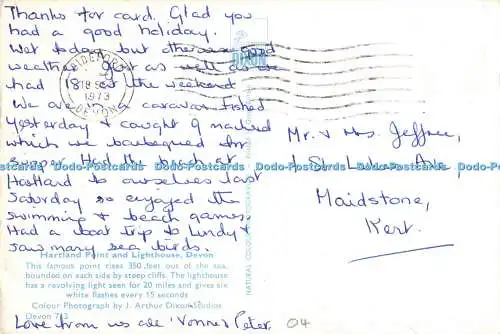 Thanks for card. Glad you
had a good holiday.
Wet today but otherwise good
weather just as well as we
had 18 at the weekend
We are in a caravan fished
yesterday & caught 9 mackerel
which we barbequed for
supper. Had the beach at
Hartland to ourselves last
Saturday so enjoyed the
swimming & beach games.
Had a boat trip to Lundy &
saw many sea birds.
Hartland Point and Lighthouse, Devon
This famous point rises 350 feet out of the sea,
bounded on each side by steep cliffs. The lighthouse
has a revolving light seen for 20 miles and gives six
white flashes every 15 seconds
Colour Photograph by J. Arthur Dixon Studios
Devon
Love from us all Yvonne & Peter.
04
BIDEFORD
1973
DEVON
DIXON
NATURAL COLOUR
Mr. & Mrs. Jeffree,
St. Lukes Ave,
Maidstone,
Kent.
Dodo-Postcards Dodo-Postcards Dodo-Postcards Dodo-Postcards Dodo-Postcards